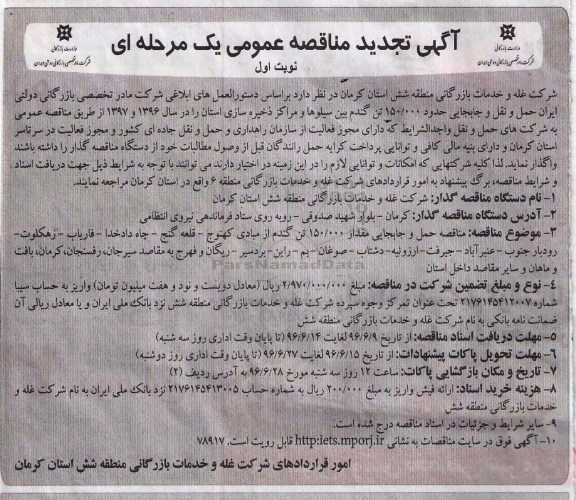 آگهی تجدید مناقصه عمومی یک مرحله ای
نوبت اول
وزارت بازرگانی
شرکت مادر تخصصی بازرگانی دولتی ایران
وزارت بازرگانی
شرکت مادر تخصصی بازرگانی دولتی ایران
شرکت غله و خدمات بازرگانی منطقه شش استان کرمان در نظر دارد براساس دستورالعمل های ابلاغی شرکت مادر تخصصی بازرگانی دولتی
ایران حمل و نقل و جابجایی حدود ۱۵۰/۰۰۰ تن گندم بین سیلوها و مراکز ذخیره سازی استان را در سال ۱۳۹۶ و ۱۳۹۷ از طریق مناقصه عمومی
به شرکت های حمل و نقل واجدالشرایط که دارای مجوز فعالیت از سازمان راهداری و حمل و نقل جاده ای کشور و مجوز فعالیت در سرتاسر
استان کرمان و دارای بنیه مالی کافی و توانایی پرداخت کرایه حمل رانندگان قبل از وصول مطالبات خود از دستگاه مناقصه گذار را داشته باشند
واگذار نماید. لذا کلیه شرکتهایی که امکانات و توانایی لازم را در این زمینه در اختیار دارند می توانند با توجه به شرایط ذیل جهت دریافت اسناد
و شرایط مناقصه، برگ پیشنهاد به امور قراردادهای شرکت غله و خدمات بازرگانی منطقه ۶ واقع در استان کرمان مراجعه نمایند.
۱- نام دستگاه مناقصه گذار: شرکت غله و خدمات بازرگانی منطقه شش استان کرمان
۲- آدرس دستگاه مناقصه گذار: کرمان - بلوار شهید صدوقی - روبه روی ستاد فرماندهی نیروی انتظامی
۳- موضوع مناقصه: مناقصه حمل و جابجایی مقدار ۱۵۰/۰۰۰ تن گندم از مبادی کهنوج - قلعه گنج - چاه دادخدا - فاریاب - زهکلوت-
رودبار جنوب - عنبرآباد - جیرفت- ارزوئیه- دشتاب - صوغان -بم - راین- بردسیر - ریگان و فهرج به مقاصد سیرجان، رفسنجان، کرمان، بافت
و ماهان و سایر مقاصد داخل استان
ParsNamadData
۴- نوع و مبلغ تضمین شرکت در مناقصه: مبلغ ۲/۹۷۰/۰۰۰/۰۰۰ ریال (معادل دویست و نود و هفت میلیون تومان) واریز به حساب سیبا
شماره ۲۱۷۶۱۴۵۴۱۲۰۰۷ تحت عنوان تمرکز وجوه سپرده شرکت غله و خدمات بازرگانی منطقه شش نزد بانک ملی ایران و یا معادل ریالی آن
ضمانت نامه بانکی به نام شرکت غله و خدمات بازرگانی منطقه شش
۵- مهلت دریافت اسناد مناقصه: از تاریخ ۹۶/۶/۹ لغایت ۹۶/۶/۱۴ (تا پایان وقت اداری روز سه شنبه)
۶- مهلت تحویل پاکات پیشنهادات: از تاریخ ۹۶/۶/۱۵ لغایت ۹۶/۶/۲۷ (تا پایان وقت اداری روز دوشنبه)
۷- تاریخ و مکان بازگشایی پاکات: ساعت ۱۲ روز سه شنبه مورخ ۹۶/۶/۲۸ به آدرس ردیف (۲)
۸- هزینه خرید اسناد: ارائه فیش واریز به مبلغ ۲۰۰/۰۰۰ ریال به شماره حساب ۲۱۷۶۱۴۵۴۱۳۰۰۵ نزد بانک ملی ایران به نام شرکت غله و
خدمات بازرگانی منطقه شش
۹- سایر شرایط و جزئیات در اسناد مناقصه درج شده است.
۱۰- آگهی فوق در سایت مناقصات به نشانی http:iets.mporj.ir قابل رویت است. ۷۸۹۱۷
امور قراردادهای شرکت غله و خدمات بازرگانی منطقه شش استان کرمان